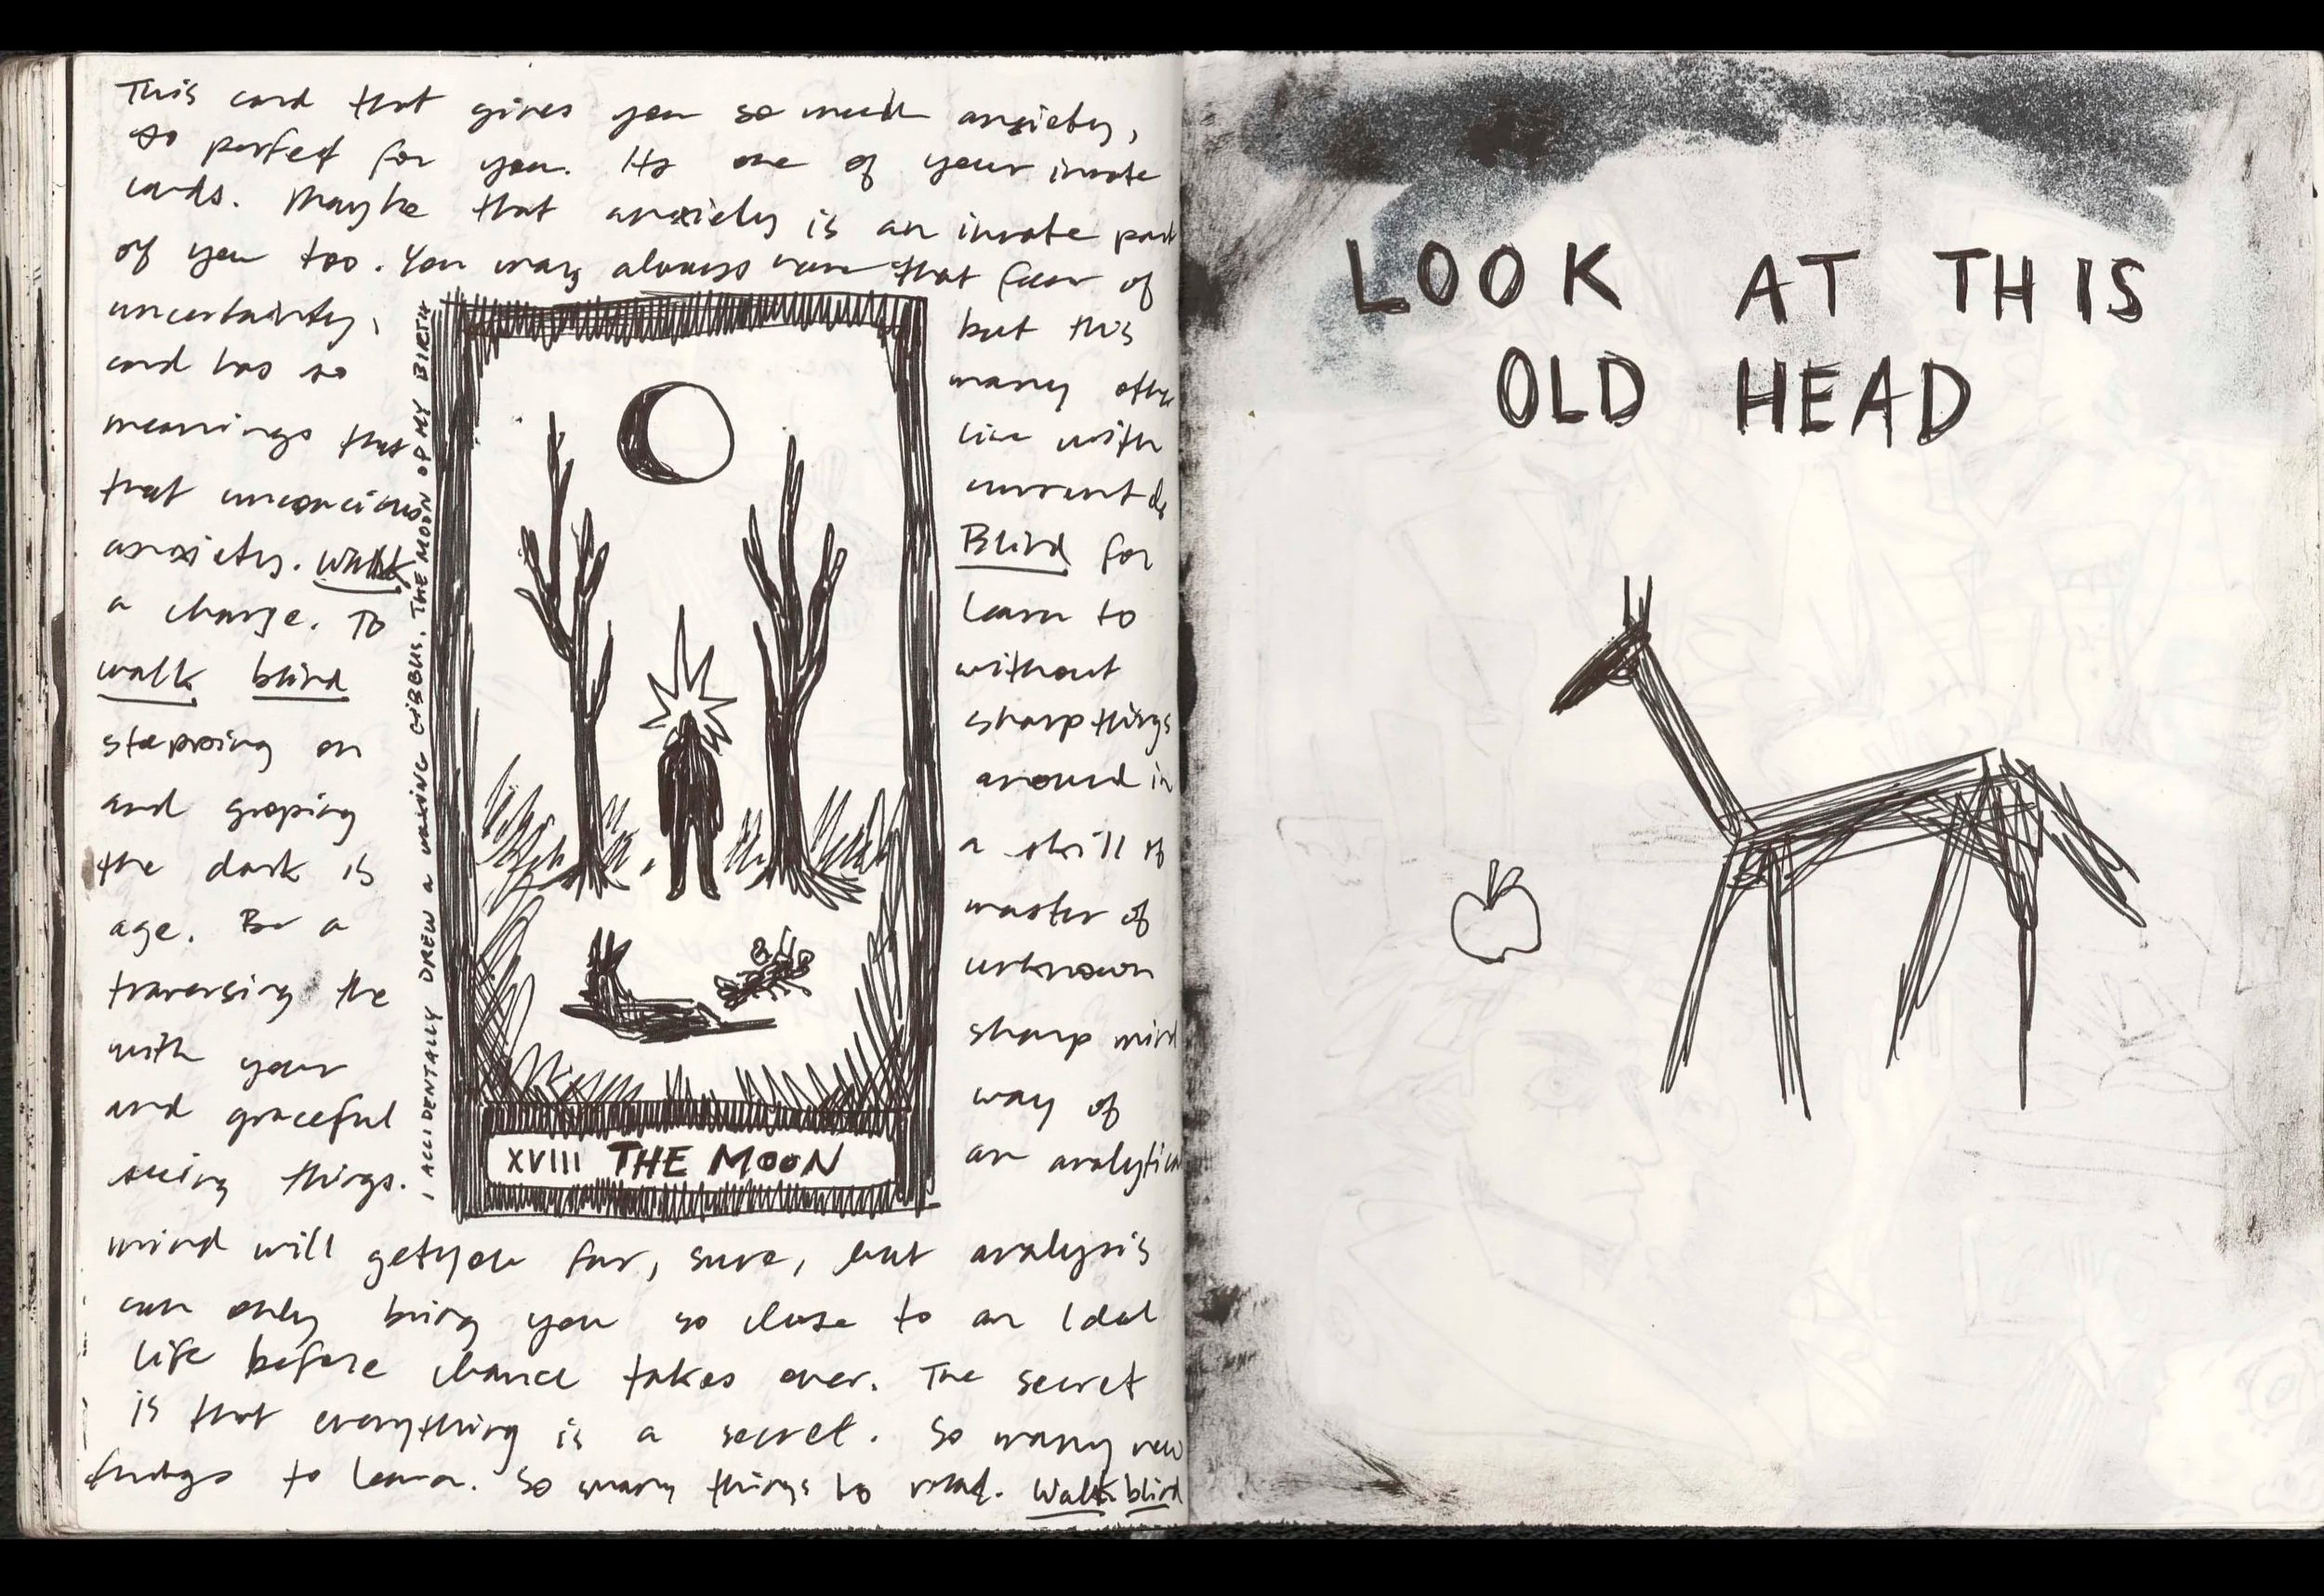 This card that gives you so much anxiety,
so perfect for you. Its one of your innate
cards. Maybe that anxiety is an innate part
of you too. You may always have that fear of
uncertainty, but this
card has so many other
meanings that live with
that unconcious current
anxiety. Walk Blind for
a change. To learn to
walk blind without
stepping on sharp things
and groping around in
the dark is a skill to
age. Be a master of
traversing the unknown
with your sharp mind
and graceful way of
seeing things. an analytical
mind will get you far, sure, but analysis
can only bring you so close to an Ideal
life before chance takes over. The secret
is that everything is a secret. So many new
things to learn. So many things to read. Walk blind
I ACCIDENTALLY DREW A WAXING GIBBUS. THE MOON OF MY BIRTH
XVIII THE MOON
LOOK AT THIS
OLD HEAD